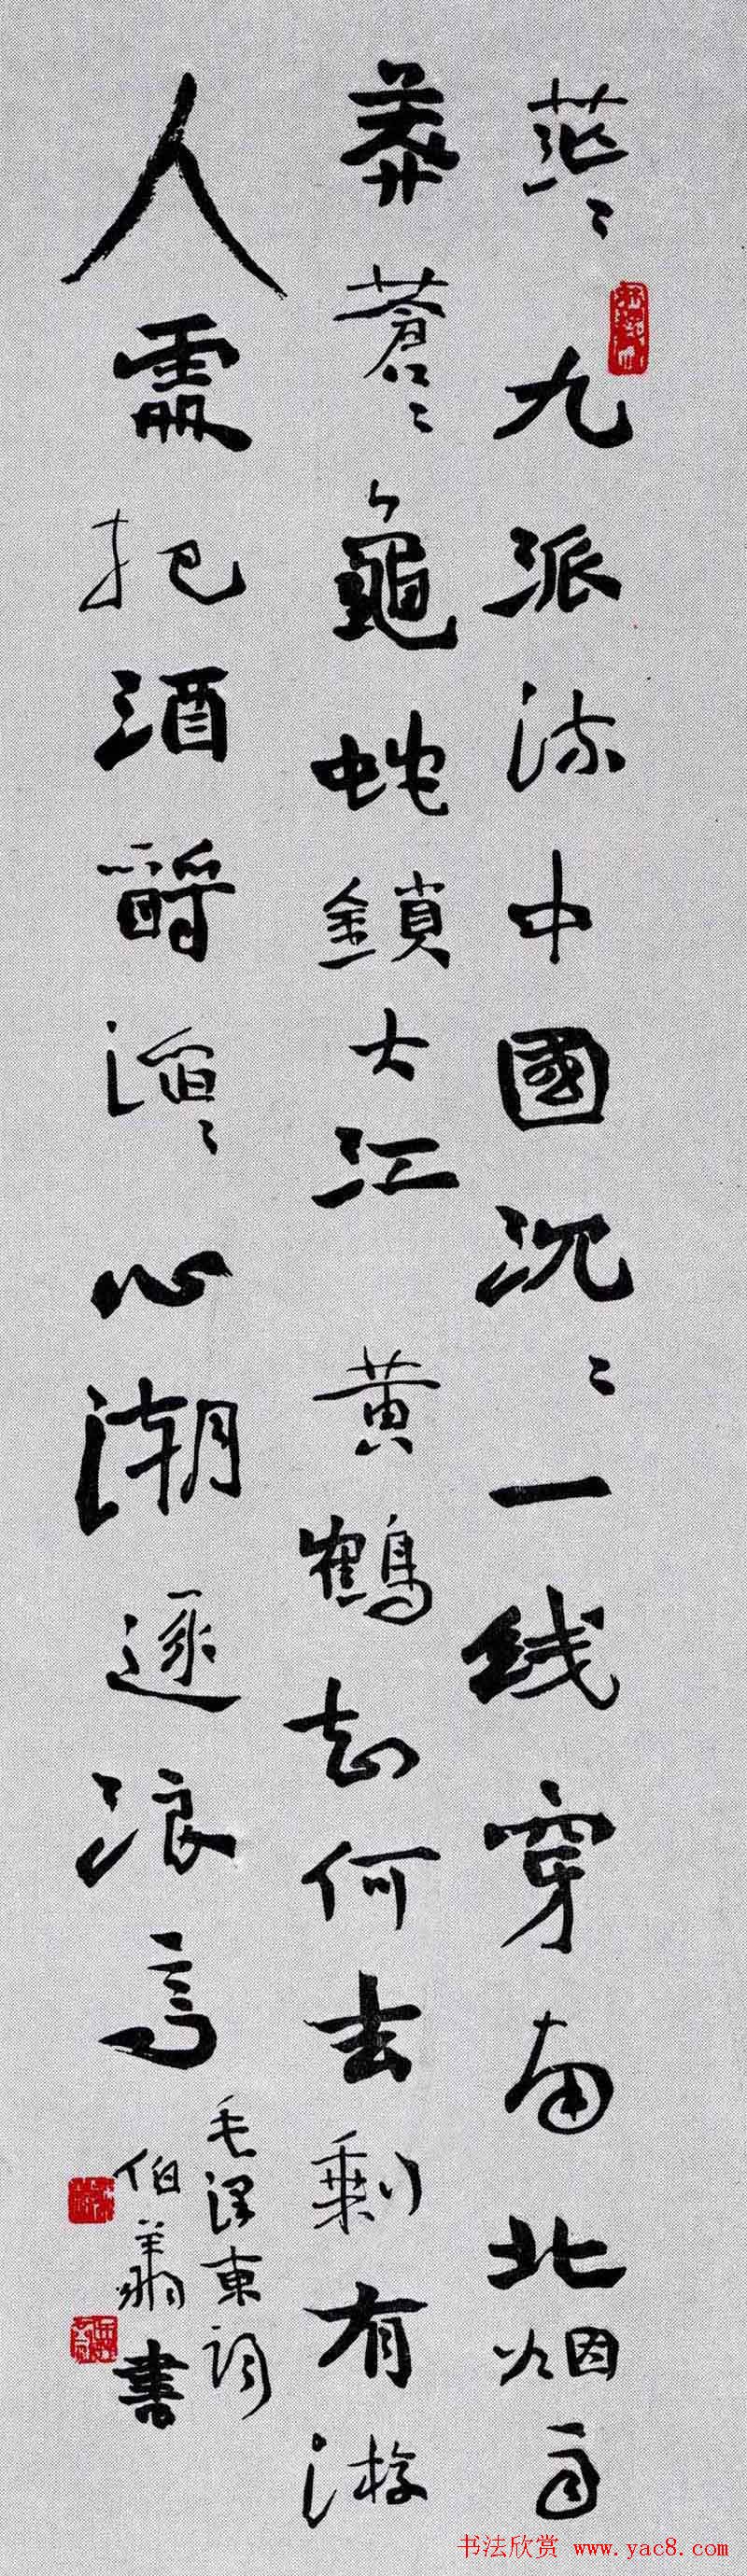 茫〻九派流中國沉〻一线穿南北烟雨
莽蒼〻龜蛇鎖大江黄鶴知何去剩有游
人處把酒酹滔〻心潮逐浪高
毛泽東詞
伯翔書
书法欣赏 www.yac8.com